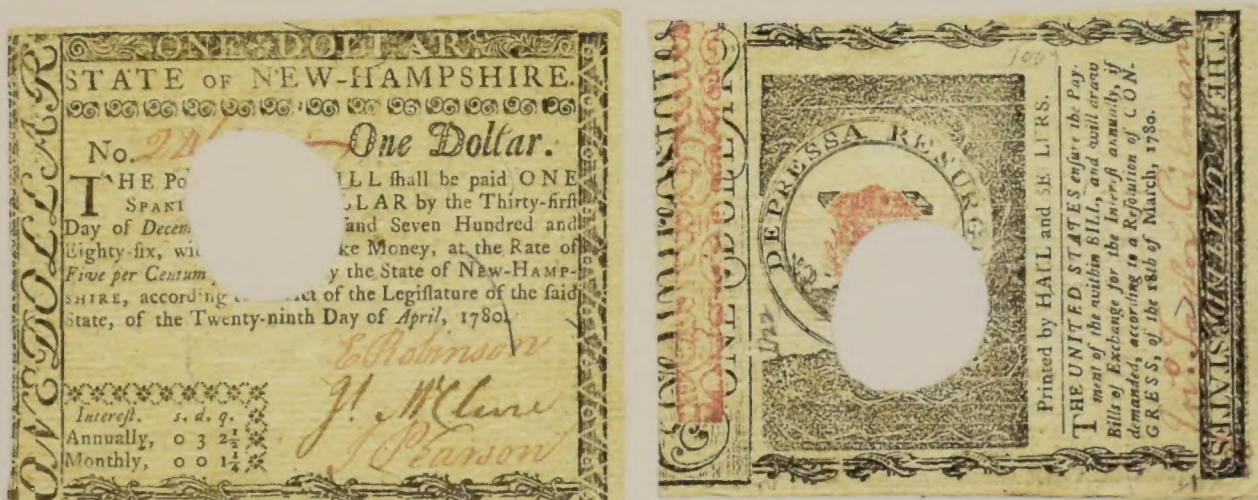 ONE DOLLAR
ONE DOLLAR
STATE OF NEW-HAMPSHIRE.
No. One Dollar.
THE Po ILL ſhall be paid ONE
SPANI LLAR by the Thirty-firſt
Day of Decem and Seven Hundred and
Eighty-ſix, wi ke Money, at the Rate of
Five per Centum y the State of NEW-HAMP-
SHIRE, according ct of the Legiſlature of the ſaid
State, of the Twenty-ninth Day of April, 1780.
E Robinson
Jt McClure
J Pearson
Intereſt. s. d. q.
Annually, 0 3 2½
Monthly, 0 0 1¼
ONE DOLLAR
DEPRESSA RESURG
Printed by HALL and SELLERS.
THE UNITED STATES enſure the Pay-
ment of the within BILL, and will draw
Bills of Exchange for the Intereſt annually, if
demanded, according to a Reſolution of CON-
GRESS, of the 18th of March, 1780.
Jno Taylor Gilman
THE UNITED STATES